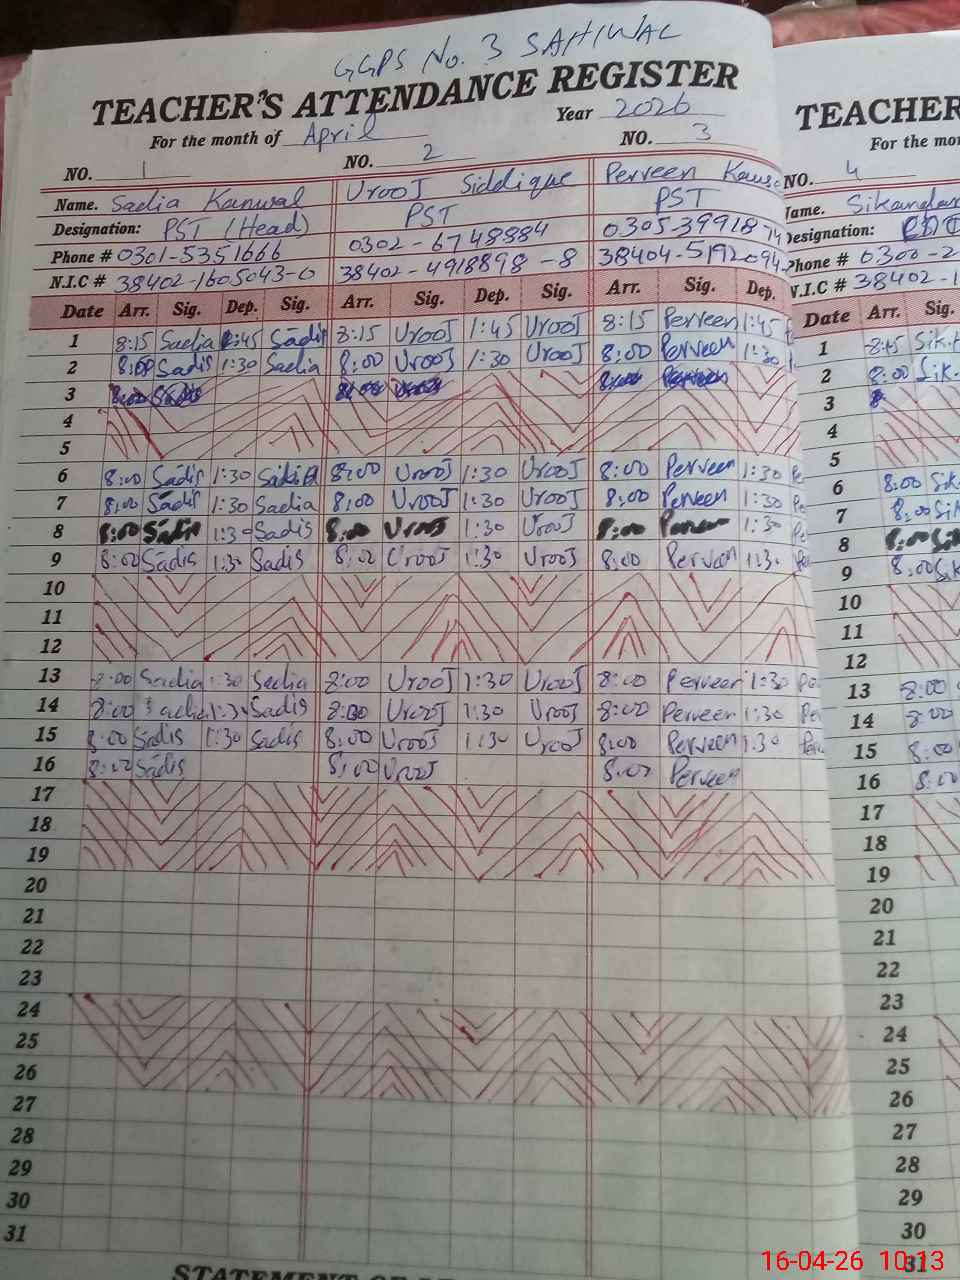 GGPS No. 3 SAHIWAL
TEACHER'S ATTENDANCE REGISTER
For the month of April Year 2026
NO. 1 NO. 2 NO. 3
Name. Sadia Kanwal Urooj Siddique Perveen
Designation: PST (Head) PST PST
Phone # 0301-5351666 0302-6748884 0305-39918
N.I.C # 38402-1605043-0 38402-4918898-8 38404-5192094-
Date Arr. Sig. Dep. Sig. Arr. Sig. Dep. Sig. Arr. Sig. Dep.
1 8:15 Sadia 1:45 Sadia 8:15 Urooj 1:45 Urooj 8:15 Perveen 1:45
2 8:00 Sadia 1:30 Sadia 8:00 Urooj 1:30 Urooj 8:00 Perveen 1:30
3
4
5
6 8:00 Sadia 1:30 Sadia 8:00 Urooj 1:30 Urooj 8:00 Perveen 1:30 Pe
7 8:00 Sadia 1:30 Sadia 8:00 Urooj 1:30 Urooj 8:00 Perveen 1:30 Pe
8 8:00 Sadia 1:30 Sadia 8:00 Urooj 1:30 Urooj 8:00 Perveen 1:30 Pe
9 8:00 Sadia 1:30 Sadia 8:00 Urooj 1:30 Urooj 8:00 Perveen 1:30
10
11
12
13 8:00 Sadia 1:30 Sadia 8:00 Urooj 1:30 Urooj 8:00 Perveen 1:30 Pe
14 8:00 Sadia 1:30 Sadia 8:00 Urooj 1:30 Urooj 8:00 Perveen 1:30 Pe
15 8:00 Sadia 1:30 Sadia 8:00 Urooj 1:30 Urooj 8:00 Perveen 1:30
16 8:00 Sadia 8:00 Urooj 8:00 Perveen
17
18
19
20
21
22
23
24
25
26
27
28
29
30
31
TEACHER
For the mo
NO. 4
Name. Sikandar
Designation:
Phone # 0300-2
N.I.C # 38402-1
Date Arr. Sig.
1 8:15 Sik.
2 8:00 Sik.
3
4
5
6 8:00 Sik
7 8:00 Sik
8 8:00 Sik
9 8:00 Sik
10
11
12
13 8:00
14 8:00
15 8:00
16 8:00
17
18
19
20
21
22
23
24
25
26
27
28
29
30
31
16-04-26 10:13